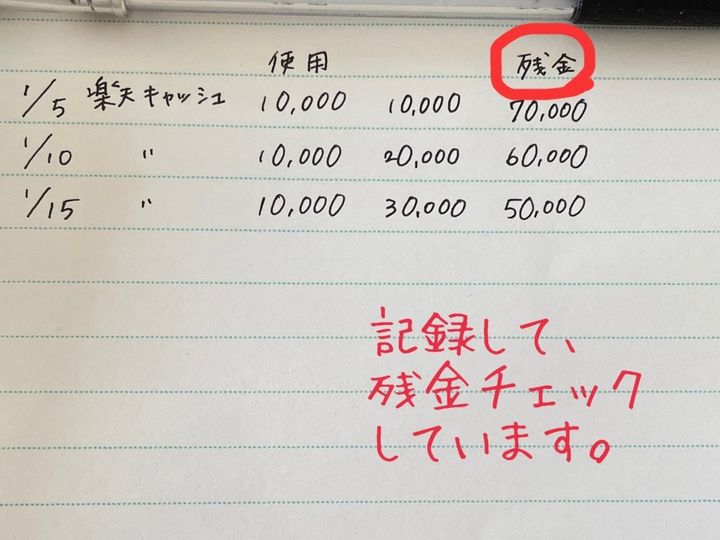 使用 残金
1/5 楽天キャッシュ 10,000 10,000 70,000
1/10 〃 10,000 20,000 60,000
1/15 〃 10,000 30,000 50,000
記録して、
残金チェック
しています。